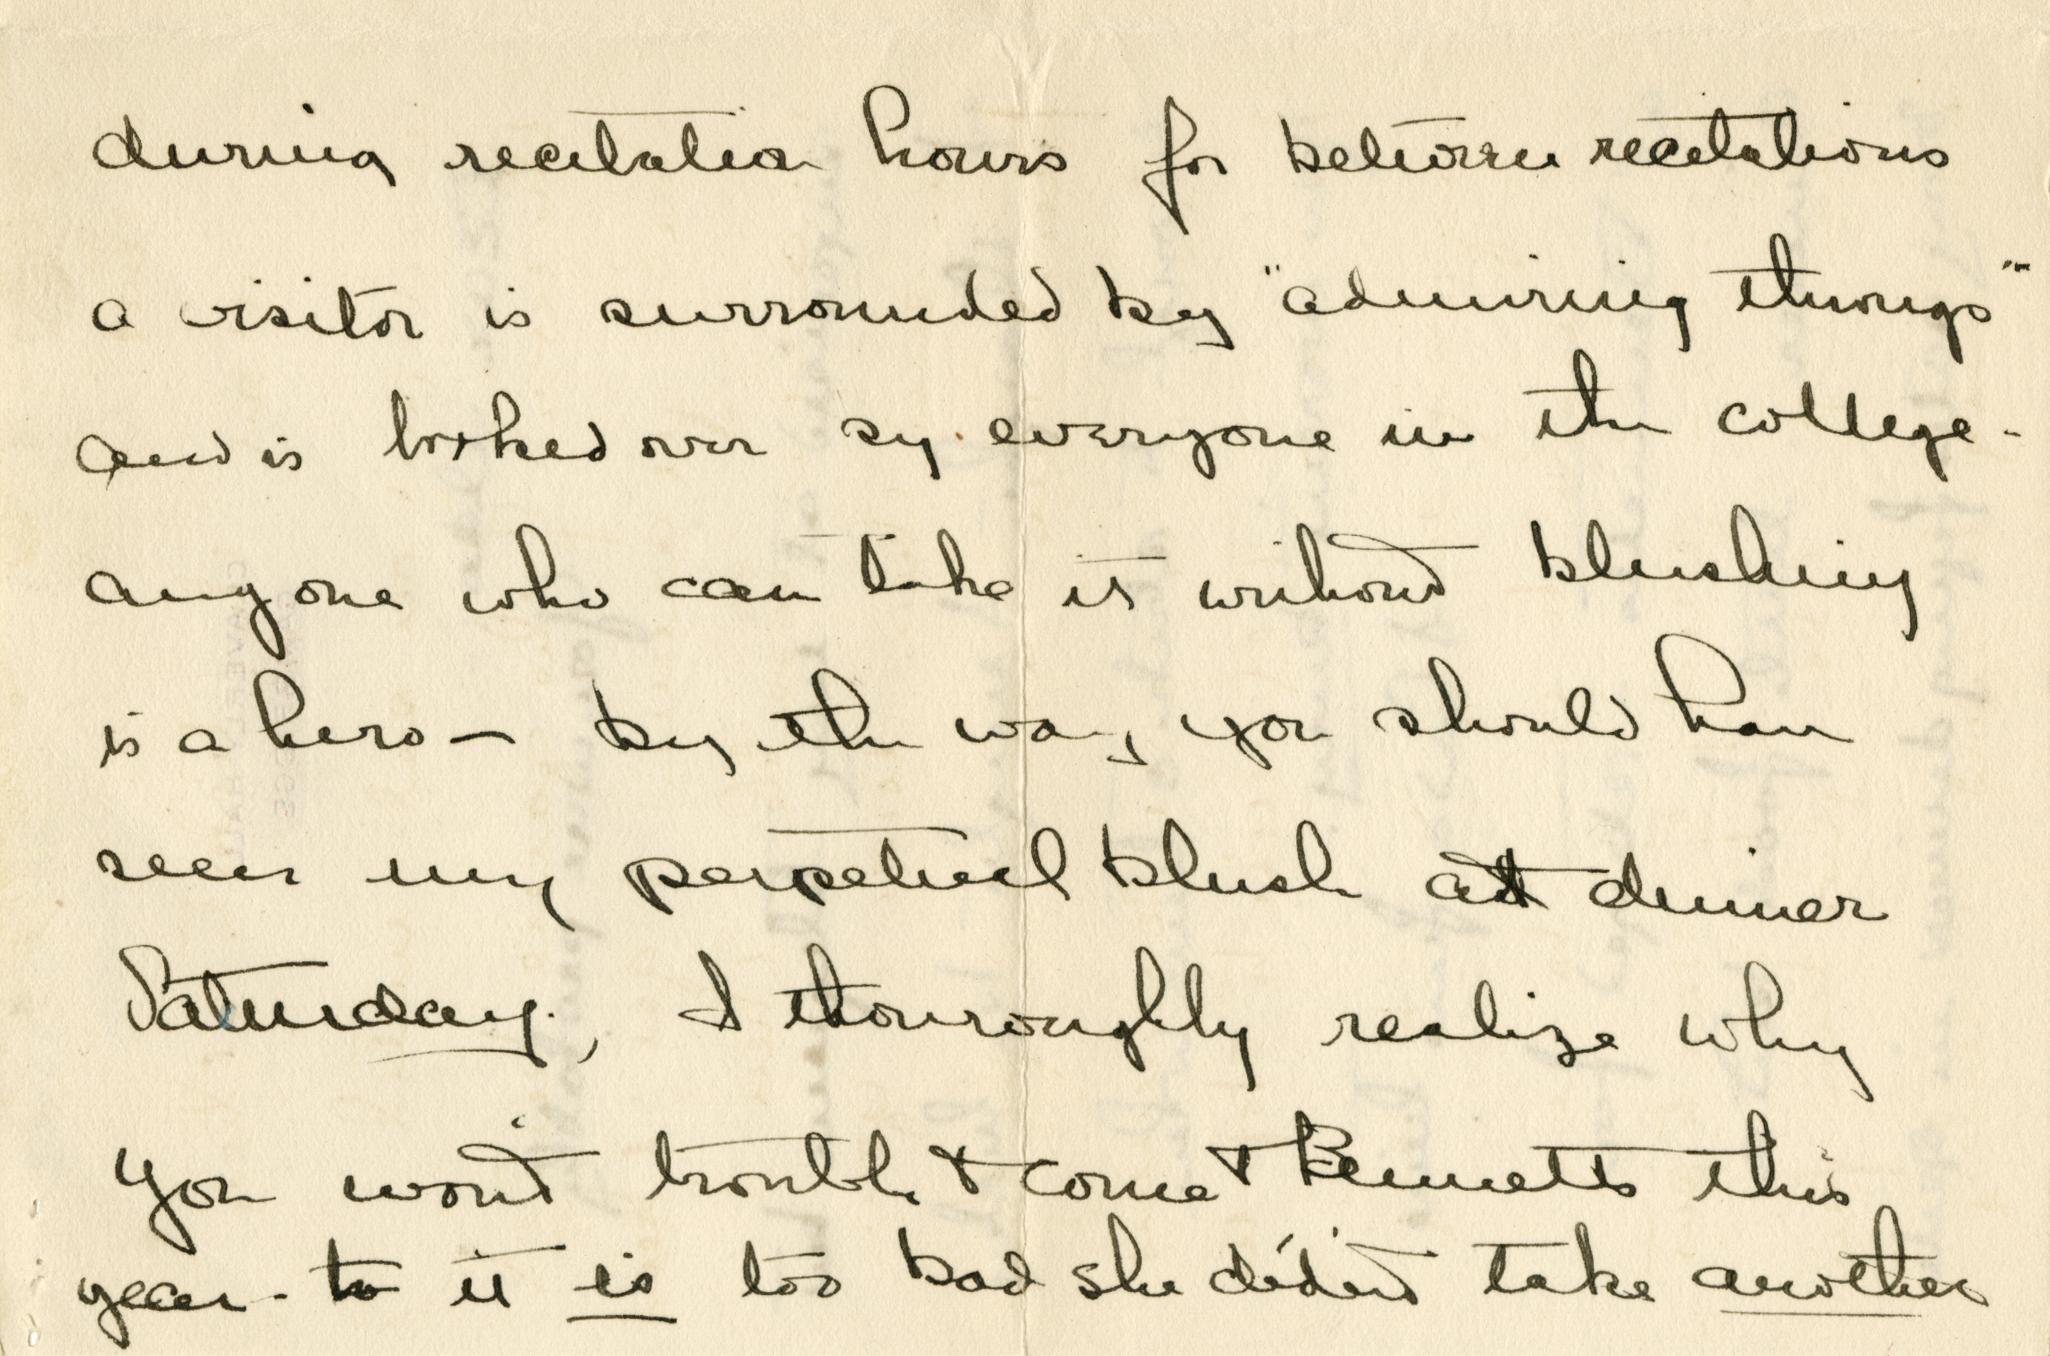 during recitation hours for between recitations
a visitor is surrounded by "admiring throngs"
and is looked over by everyone in the college -
anyone who can take it without blushing
is a hero - by the way, you should have
seen my perpetual blush at dinner
Saturday, I thouroughly realize why
you won't trouble to come to Bennetts this
year - to it is too bad she didn't take another